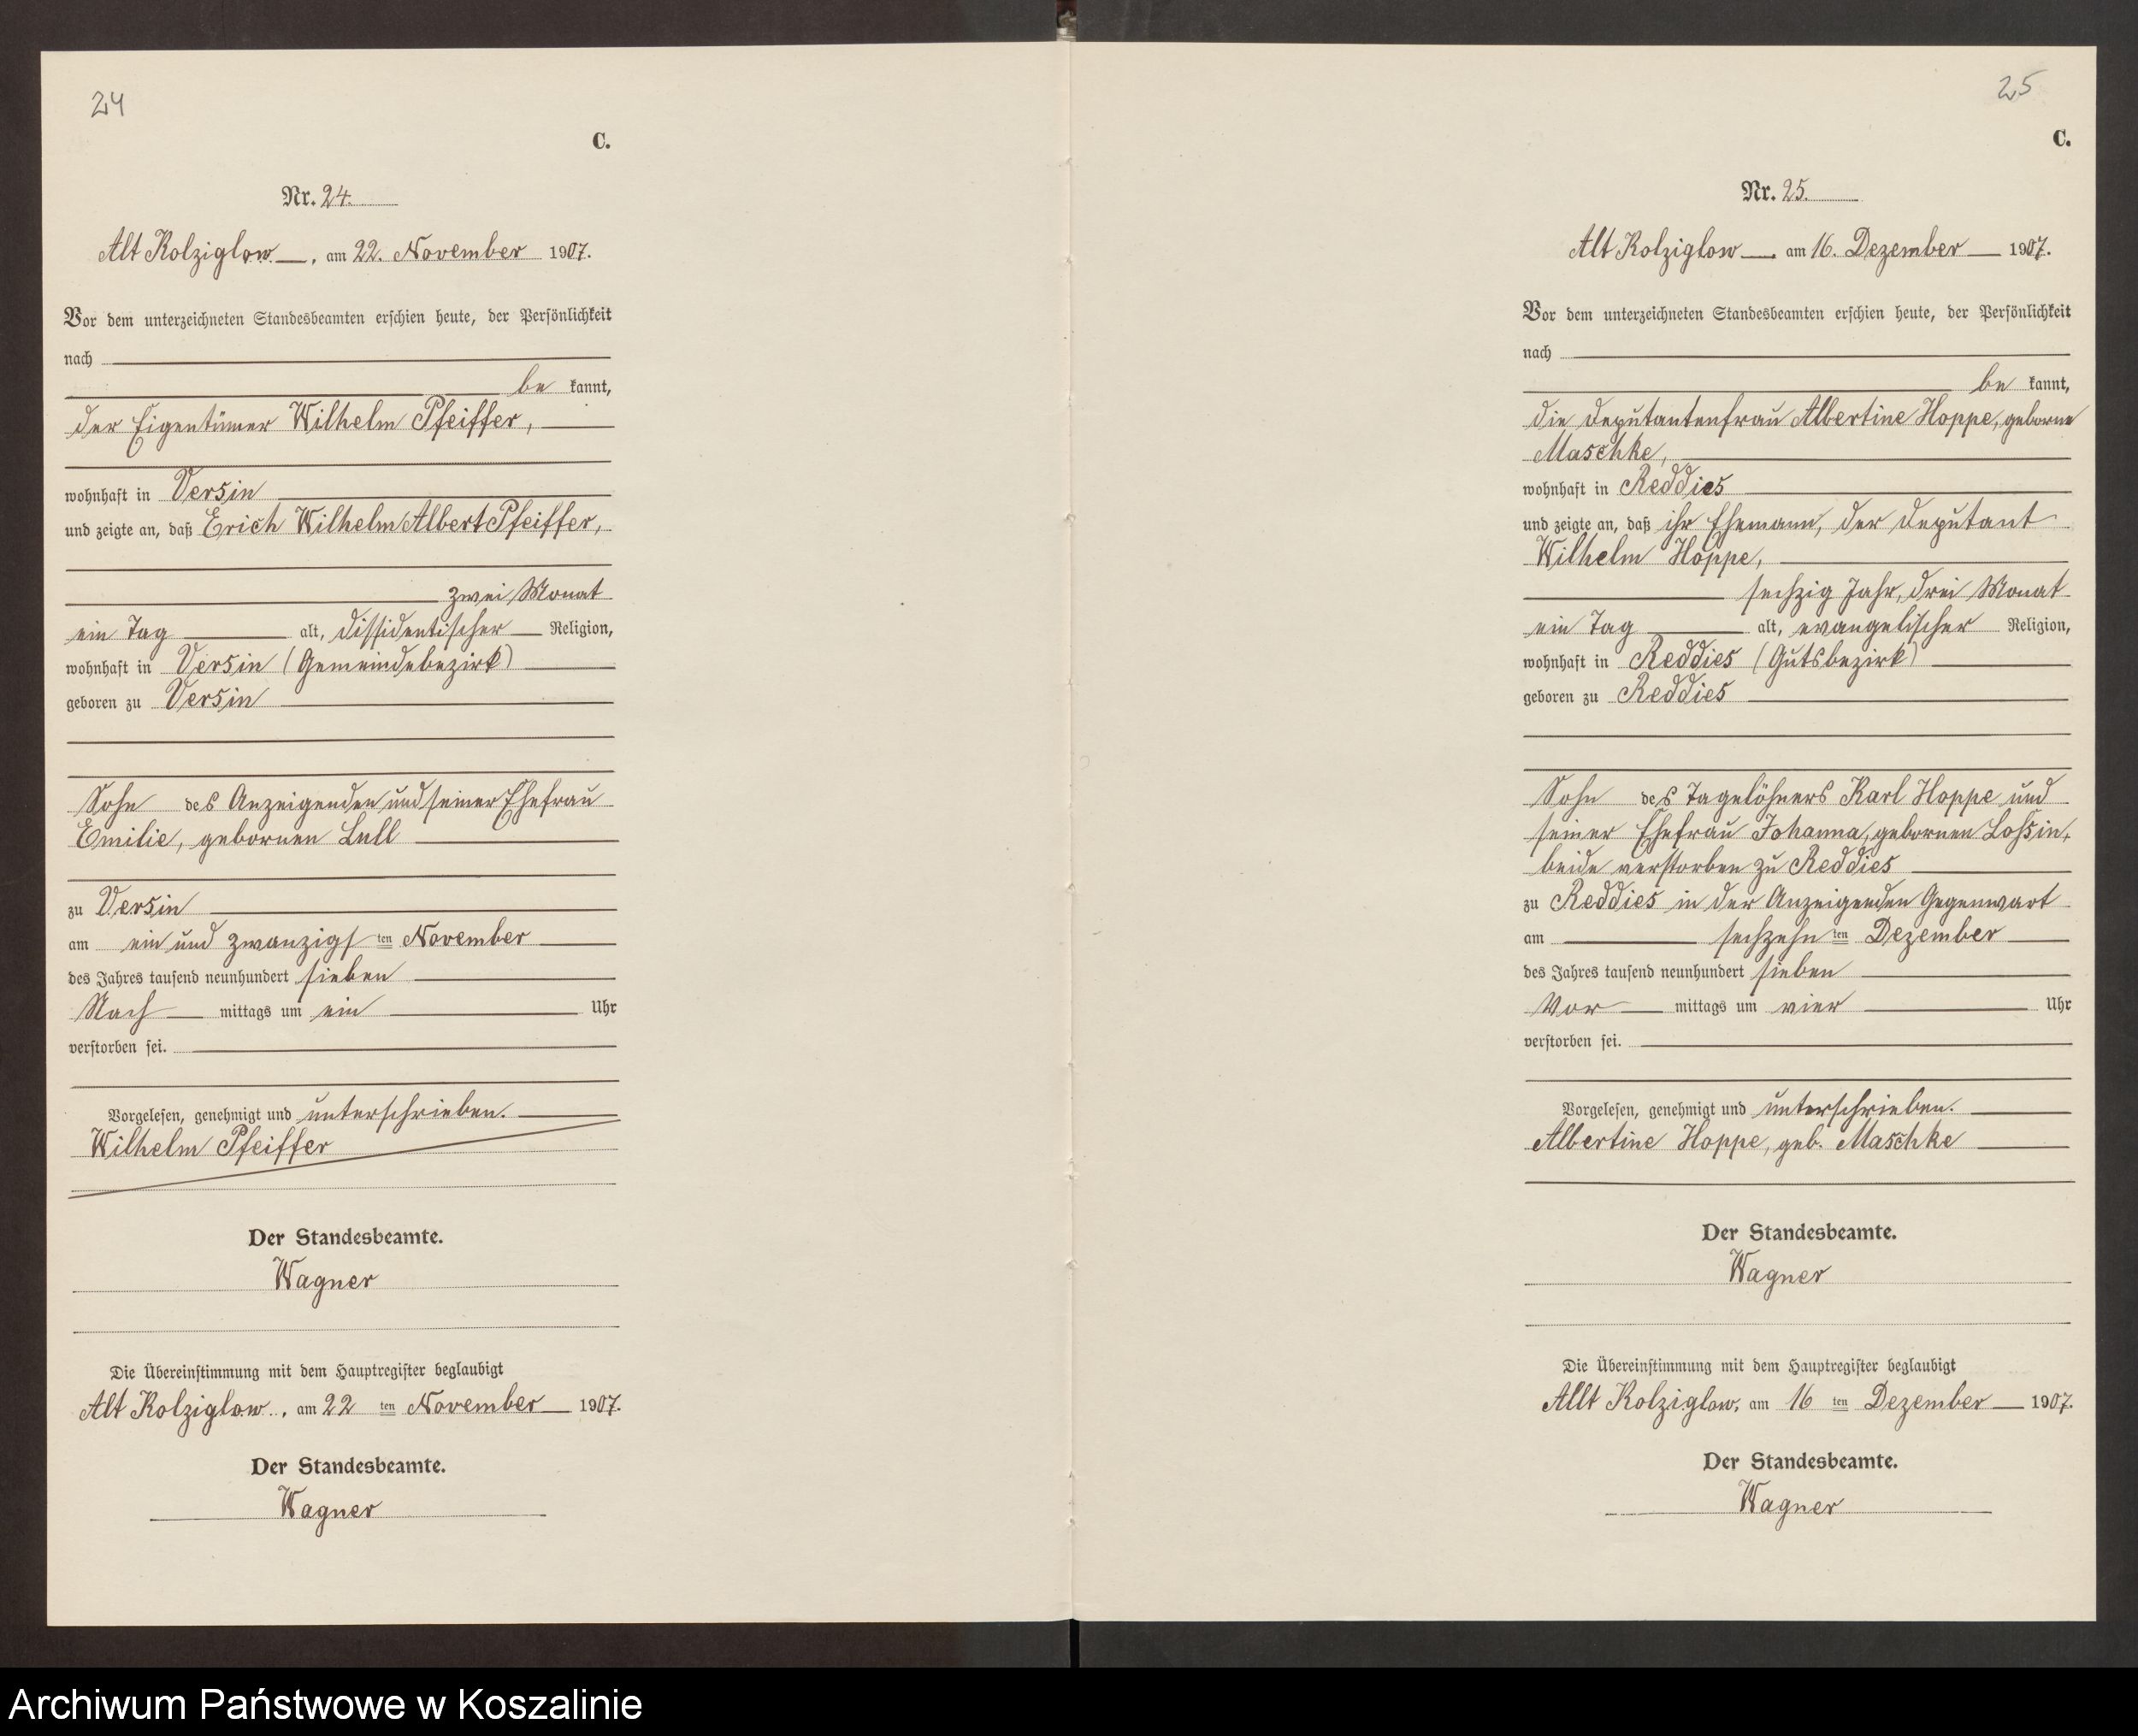 24
C.
Nr. 24.
Alt Kolziglow, am 22. November 1907.
Vor dem unterzeichneten Standesbeamten erschien heute, der Persönlichkeit
nach
be kannt,
der Eigentümer Wilhelm Pfeiffer,
wohnhaft in Versin
und zeigte an, daß Erich Wilhelm Albert Pfeiffer,
zwei Monat
ein Tag alt, dissidentischer Religion,
wohnhaft in Versin (Gemeindebezirk)
geboren zu Versin
Sohn des Anzeigenden und seiner Ehefrau
Emilie, gebornen Lull
zu Versin
am ein und zwanzigs ten November
des Jahres tausend neunhundert sieben
Nach mittags um ein Uhr
verstorben sei.
Vorgelesen, genehmigt und unterschrieben.
Wilhelm Pfeiffer
Der Standesbeamte.
Wagner
Die Übereinstimmung mit dem Hauptregister beglaubigt
Alt Kolziglow, am 22 ten November 1907.
Der Standesbeamte.
Wagner
25
C.
Nr. 25.
Alt Kolziglow, am 16. Dezember 1907.
Vor dem unterzeichneten Standesbeamten erschien heute, der Persönlichkeit
nach
be kannt,
die Deputantenfrau Albertine Hoppe, geborne
Maschke,
wohnhaft in Reddies
und zeigte an, daß ihr Ehemann, der Deputant
Wilhelm Hoppe,
sechzig Jahr, drei Monat
ein Tag alt, evangelischer Religion,
wohnhaft in Reddies (Gutsbezirk)
geboren zu Reddies
Sohn des Tagelöhners Karl Hoppe und
seiner Ehefrau Johanna, gebornen Lossin,
beide verstorben zu Reddies
zu Reddies in der Anzeigenden Gegenwart
am sechzehn ten Dezember
des Jahres tausend neunhundert sieben
Vor mittags um vier Uhr
verstorben sei.
Vorgelesen, genehmigt und unterschrieben.
Albertine Hoppe, geb. Maschke
Der Standesbeamte.
Wagner
Die Übereinstimmung mit dem Hauptregister beglaubigt
Allt Kolziglow, am 16 ten Dezember 1907.
Der Standesbeamte.
Wagner
Archiwum Państwowe w Koszalinie